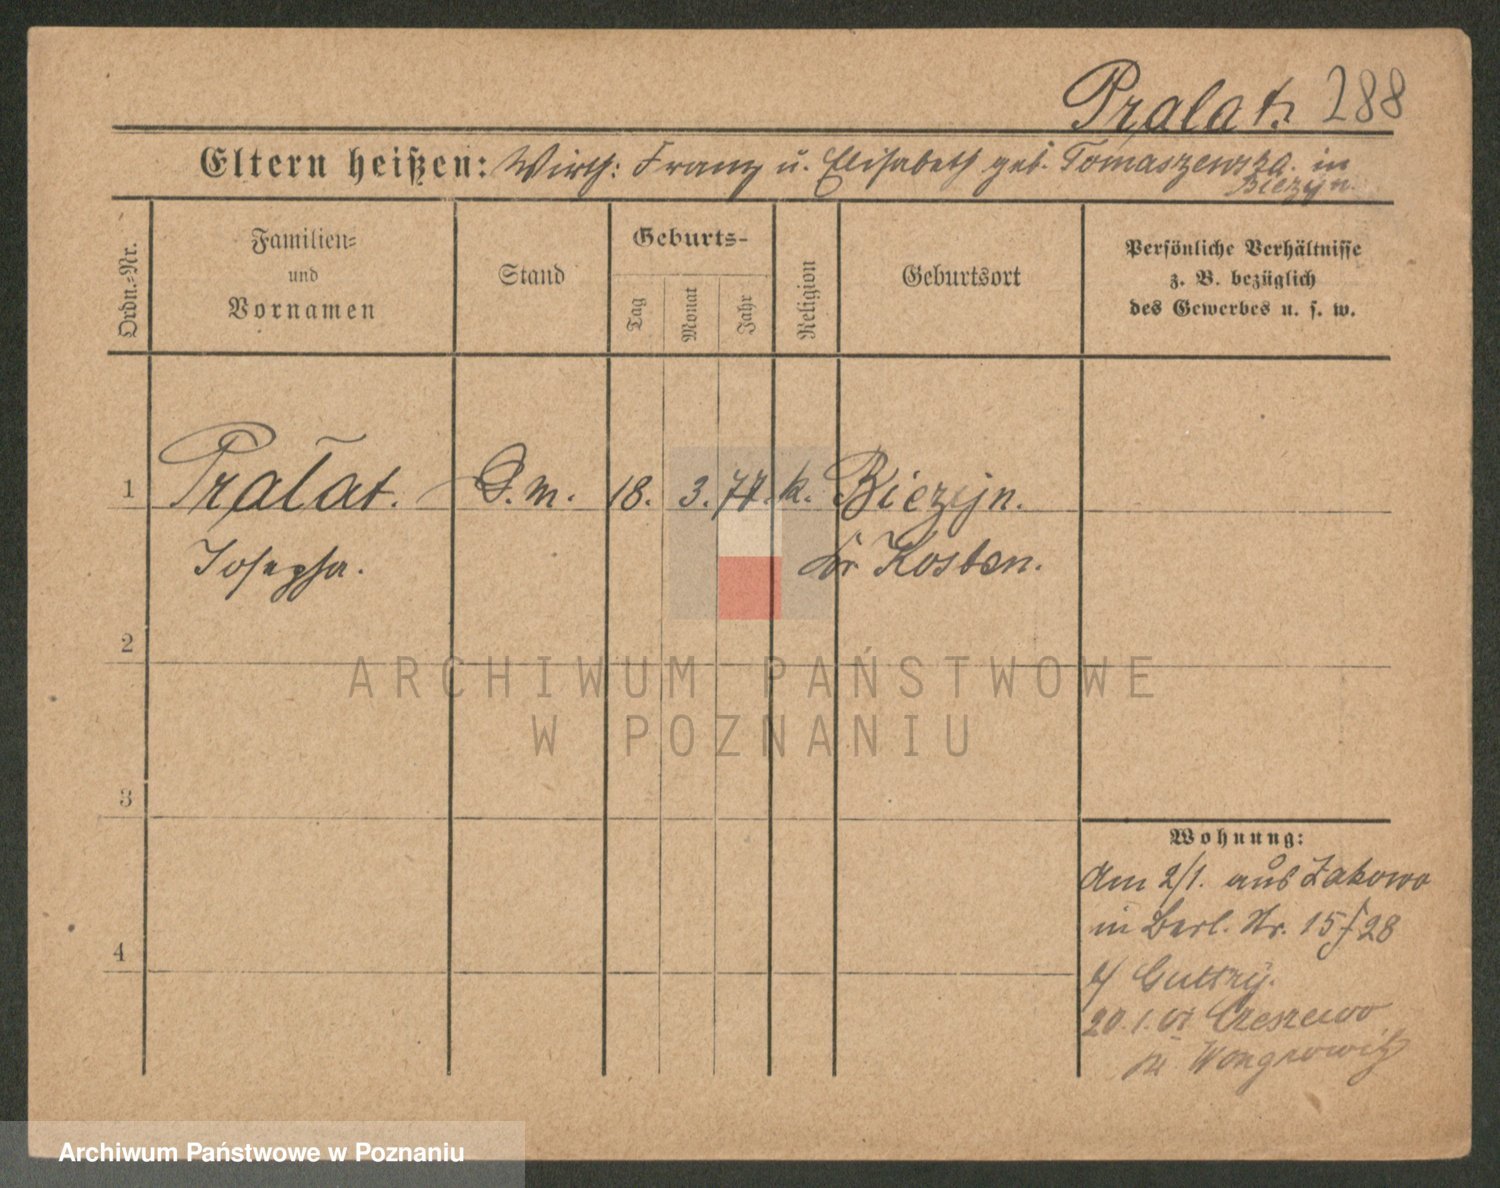 Pralat. 288
Eltern heißen: Wirth: Franz u. Elisabeth geb. Tomaszewska. in
Biezyn.
Ordn.-Nr.
Familien-
und
Vornamen
Stand
Geburts-
Tag
Monat
Jahr
Religion
Geburtsort
Persönliche Verhältnisse
z. B. bezüglich
des Gewerbes u. s. w.
1 Prałat. D. m. 18. 3. k. Biezyn.
Josepha. Kr Kosten.
2
ARCHIWUM PAŃSTWOWE
W POZNANIU
3
Wohnung:
Am 2/1. aus Zakowo
in Berl. Str. 15 28
b/ Guttry.
20.1. Czeszewo
Kr Wongrowitz
4
Archiwum Państwowe w Poznaniu